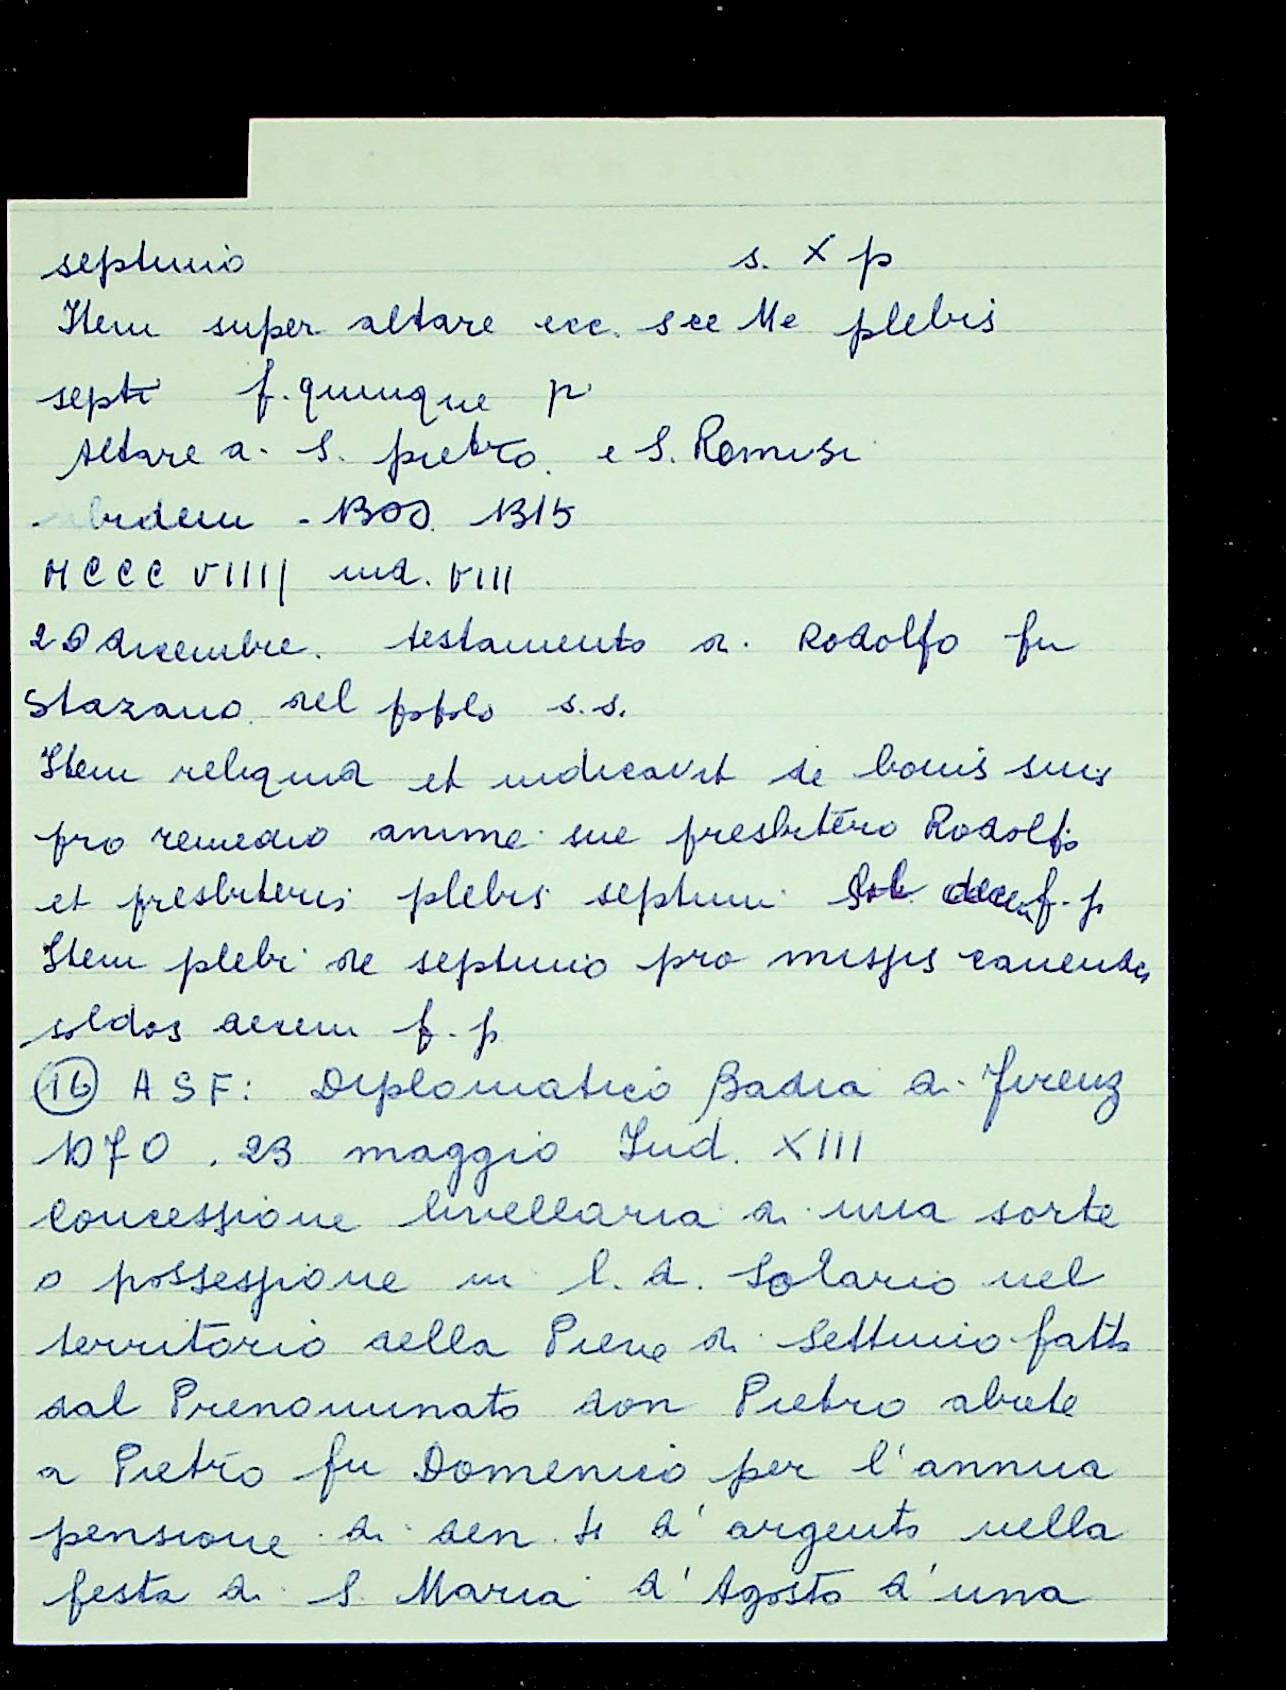 septimio s. X p
Item super altare ecc. sce Me plebis
septi f. quinque p
Altare di S. pietro e S. Romisi
ibidem - 1300. 1315
MCCCVIIII ind. VIII
20 dicembre. testamento di Rodolfo fu
Stazano del popolo s.s.
Item reliquid et iudicavit de bonis suis
pro remedio anime sue presbitero Rodolfo
et presbiteris plebis septimi sol. decem f. p
Item plebi de septimio pro missis canendis
soldos decem f. p
16 ASF: Diplomatico Badia di Firenz
1070. 23 maggio Ind. XIII
Concessione livellaria di una sorte
o possessione in l.d. Solario nel
territorio della Pieve di Settimio fatta
dal Prenominato don Pietro abate
a Pietro fu Domenico per l'annua
pensione di den. d'argento nella
festa di S. Maria d'Agosto d'una